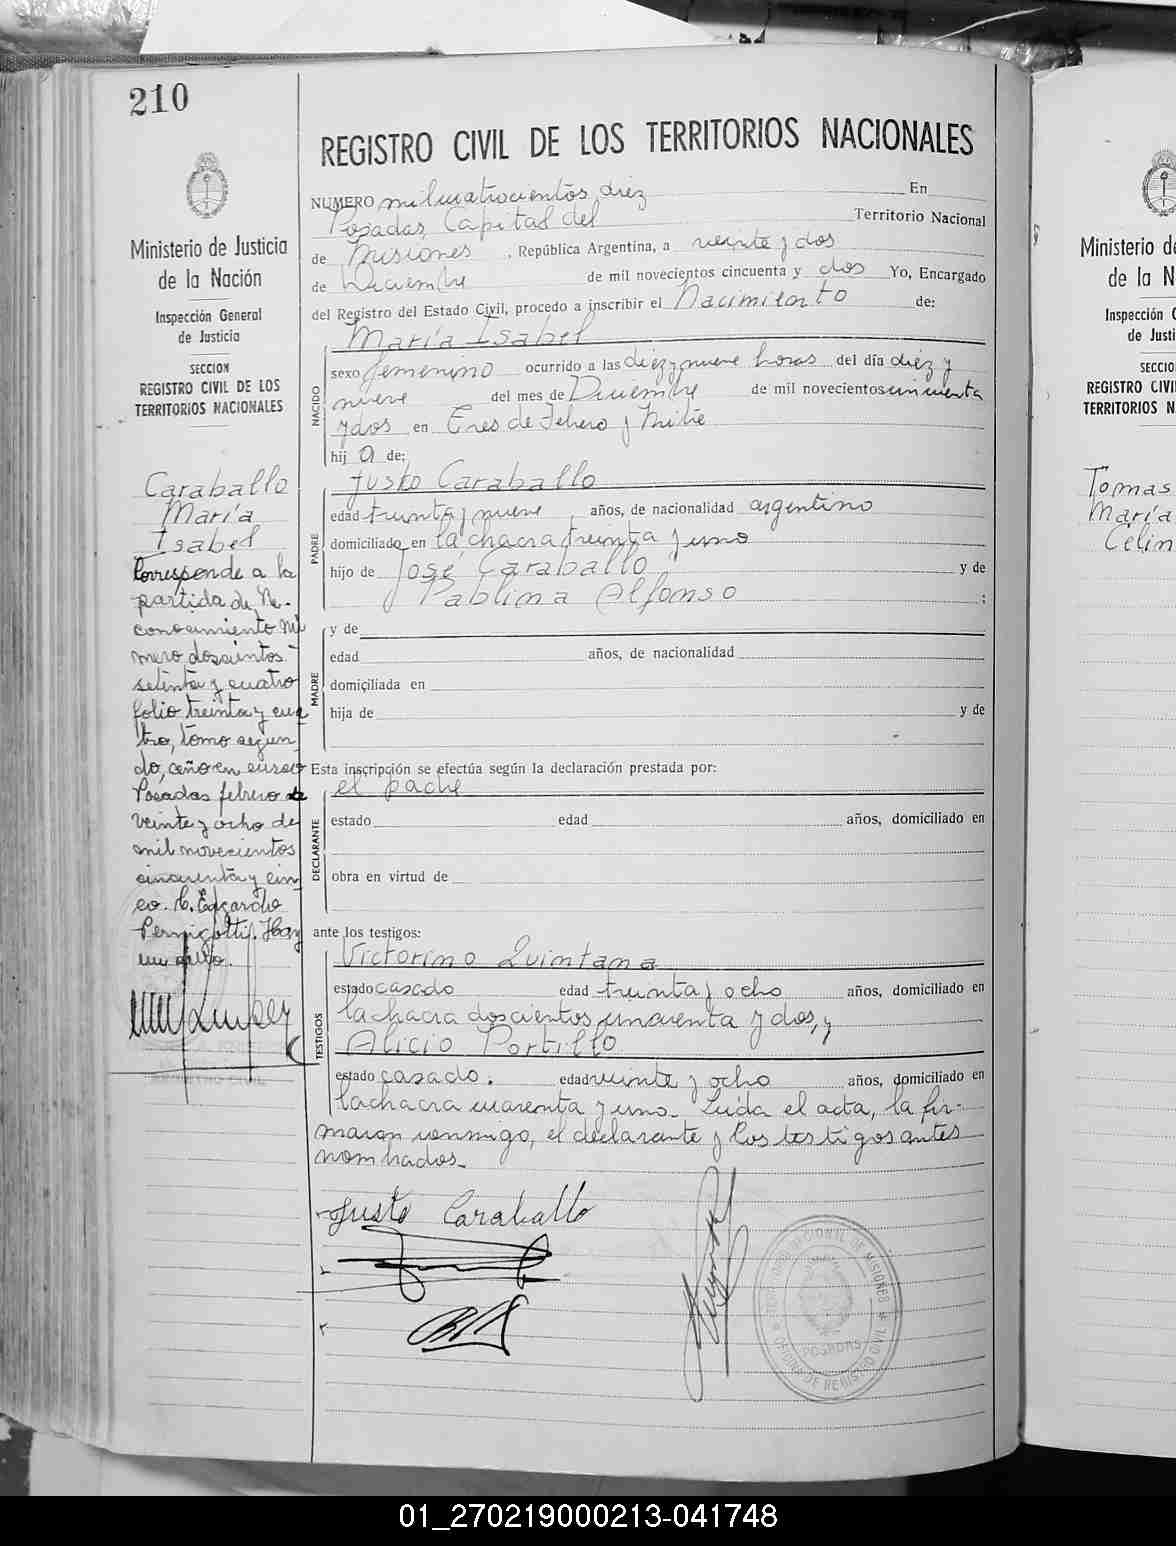 210
REGISTRO CIVIL DE LOS TERRITORIOS NACIONALES
NUMERO milcuatrocientos diez En
Posadas, Capital del Territorio Nacional
de Misiones, República Argentina, a veinte y dos
de Diciembre de mil novecientos cincuenta y dos Yo, Encargado
del Registro del Estado Civil, procedo a inscribir el Nacimiento de:
María Isabel
NACIDO
sexo femenino ocurrido a las diez y nueve horas del día diez y
nueve del mes de Diciembre de mil novecientos cincuenta
y dos en Tres de Febrero y Mitre
hij a de:
Justo Caraballo
PADRE
edad treinta y nueve años, de nacionalidad argentino
domiciliado en la chacra treinta y uno
hijo de José Caraballo y de
Pablina Alfonso ;
MADRE
y de
edad años, de nacionalidad
domiciliada en
hija de y de
Esta inscripción se efectúa según la declaración prestada por:
el padre
DECLARANTE
estado edad años, domiciliado en
obra en virtud de
ante los testigos:
Victorino Quintana
TESTIGOS
estado casado edad treinta y ocho años, domiciliado en
la chacra doscientos cuarenta y dos, y
Alicio Portillo
estado casado. edad veinte y ocho años, domiciliado en
la chacra cuarenta y uno. Leída el acta, la fir-
maron conmigo, el declarante y los testigos antes
nombrados.
Justo Caraballo
TERRITORIO NACIONAL DE MISIONES
POSADAS
OFICINA DE REGISTRO CIVIL
Ministerio de Justicia
de la Nación
Inspección General
de Justicia
SECCION
REGISTRO CIVIL DE LOS
TERRITORIOS NACIONALES
Caraballo
María
Isabel
Corresponde a la
partida de Re-
conocimiento nú
mero doscientos
setenta y cuatro
folio treinta y cua
tro, tomo segun
do, año en curso
Posadas febrero
veinte y ocho de
mil novecientos
cincuenta y cin
co. C. Edgardo
Pernigotti. Hay
un sello.
Ministerio de
de la N
Inspección G
de Justi
SECCIO
REGISTRO CIV
TERRITORIOS N
Tomas
María
Celin
01_270219000213-041748